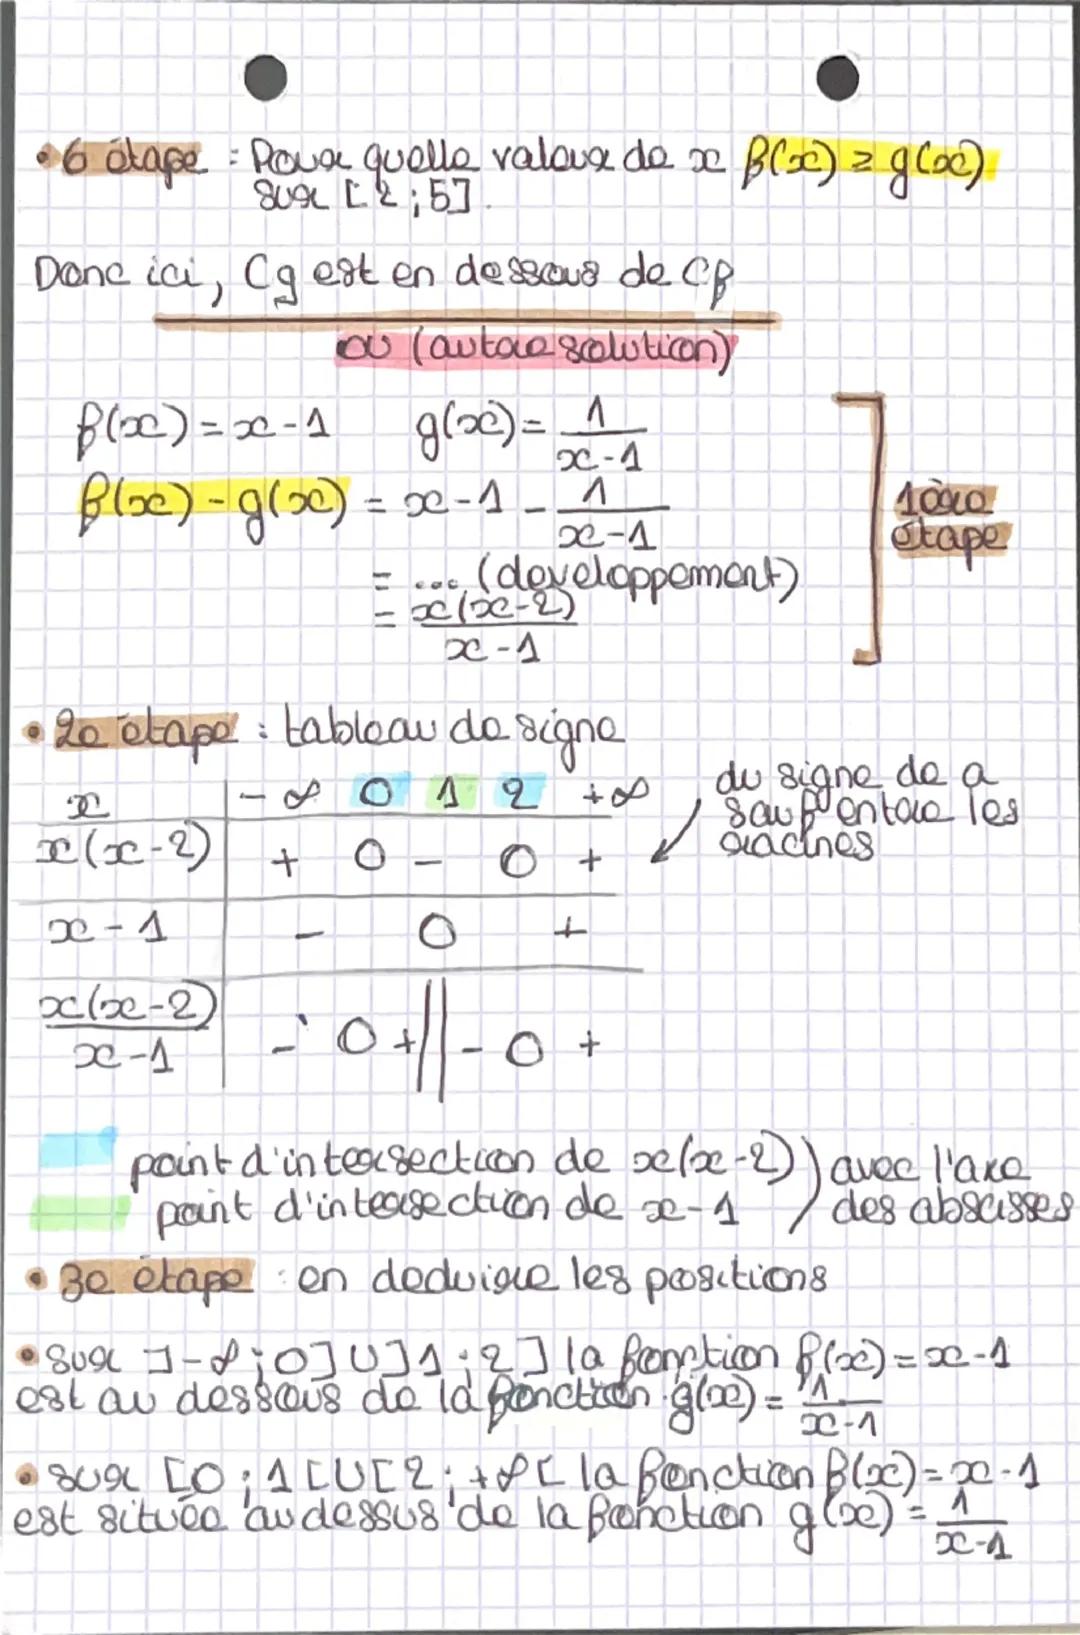 • 6 étape : Pour quelle valeur de x f(x) ≥ g(x)
sur [2 ; 5].
Donc ici, Cg est en dessous de Cf
ou (autre solution)
f(x) = x - 1    g(x) = 1/(x-1)
f(x) - g(x) = x - 1 - 1/(x-1)
= ... (developpement)
= x(x-2)/(x-1)
1ère
étape
• 2e étape : tableau de signe
x | -∞ 0 1 2 +∞
x(x-2) | + 0 - 0 +
x - 1 | - 0 +
x(x-2)/(x-1) | - 0 + || - 0 +
du signe de a
sauf entre les
racines
point d'intersection de x(x-2)) avec l'axe
point d'intersection de x-1 ) des abscisses
• 3e étape : en deduire les positions
• sur ]-∞ ; 0] U ]1 ; 2] la fonction f(x) = x - 1
est au dessous de la fonction g(x) = 1/(x-1)
• sur [0 ; 1[ U [2 ; +∞[ la fonction f(x) = x - 1
est située au dessus de la fonction g(x) = 1/(x-1)